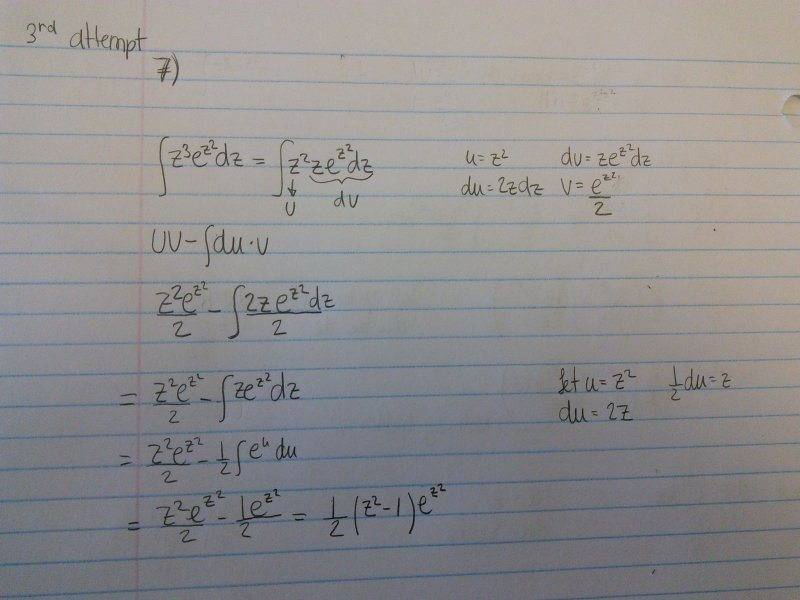 3rd attempt
7)
∫z³e^{z²}dz = ∫z² ze^{z²}dz
u = z² dv = ze^{z²}dz
↓ U dv
du = 2zdz v = e^{z²}/2
UV - ∫du·v
z²e^{z²}/2 - ∫2ze^{z²}dz/2
= z²e^{z²}/2 - ∫ze^{z²}dz
let u = z² 1/2 du = z
du = 2z
= z²e^{z²}/2 - 1/2 ∫e^u du
= z²e^{z²}/2 - 1e^{z²}/2 = 1/2 (z² - 1) e^{z²}